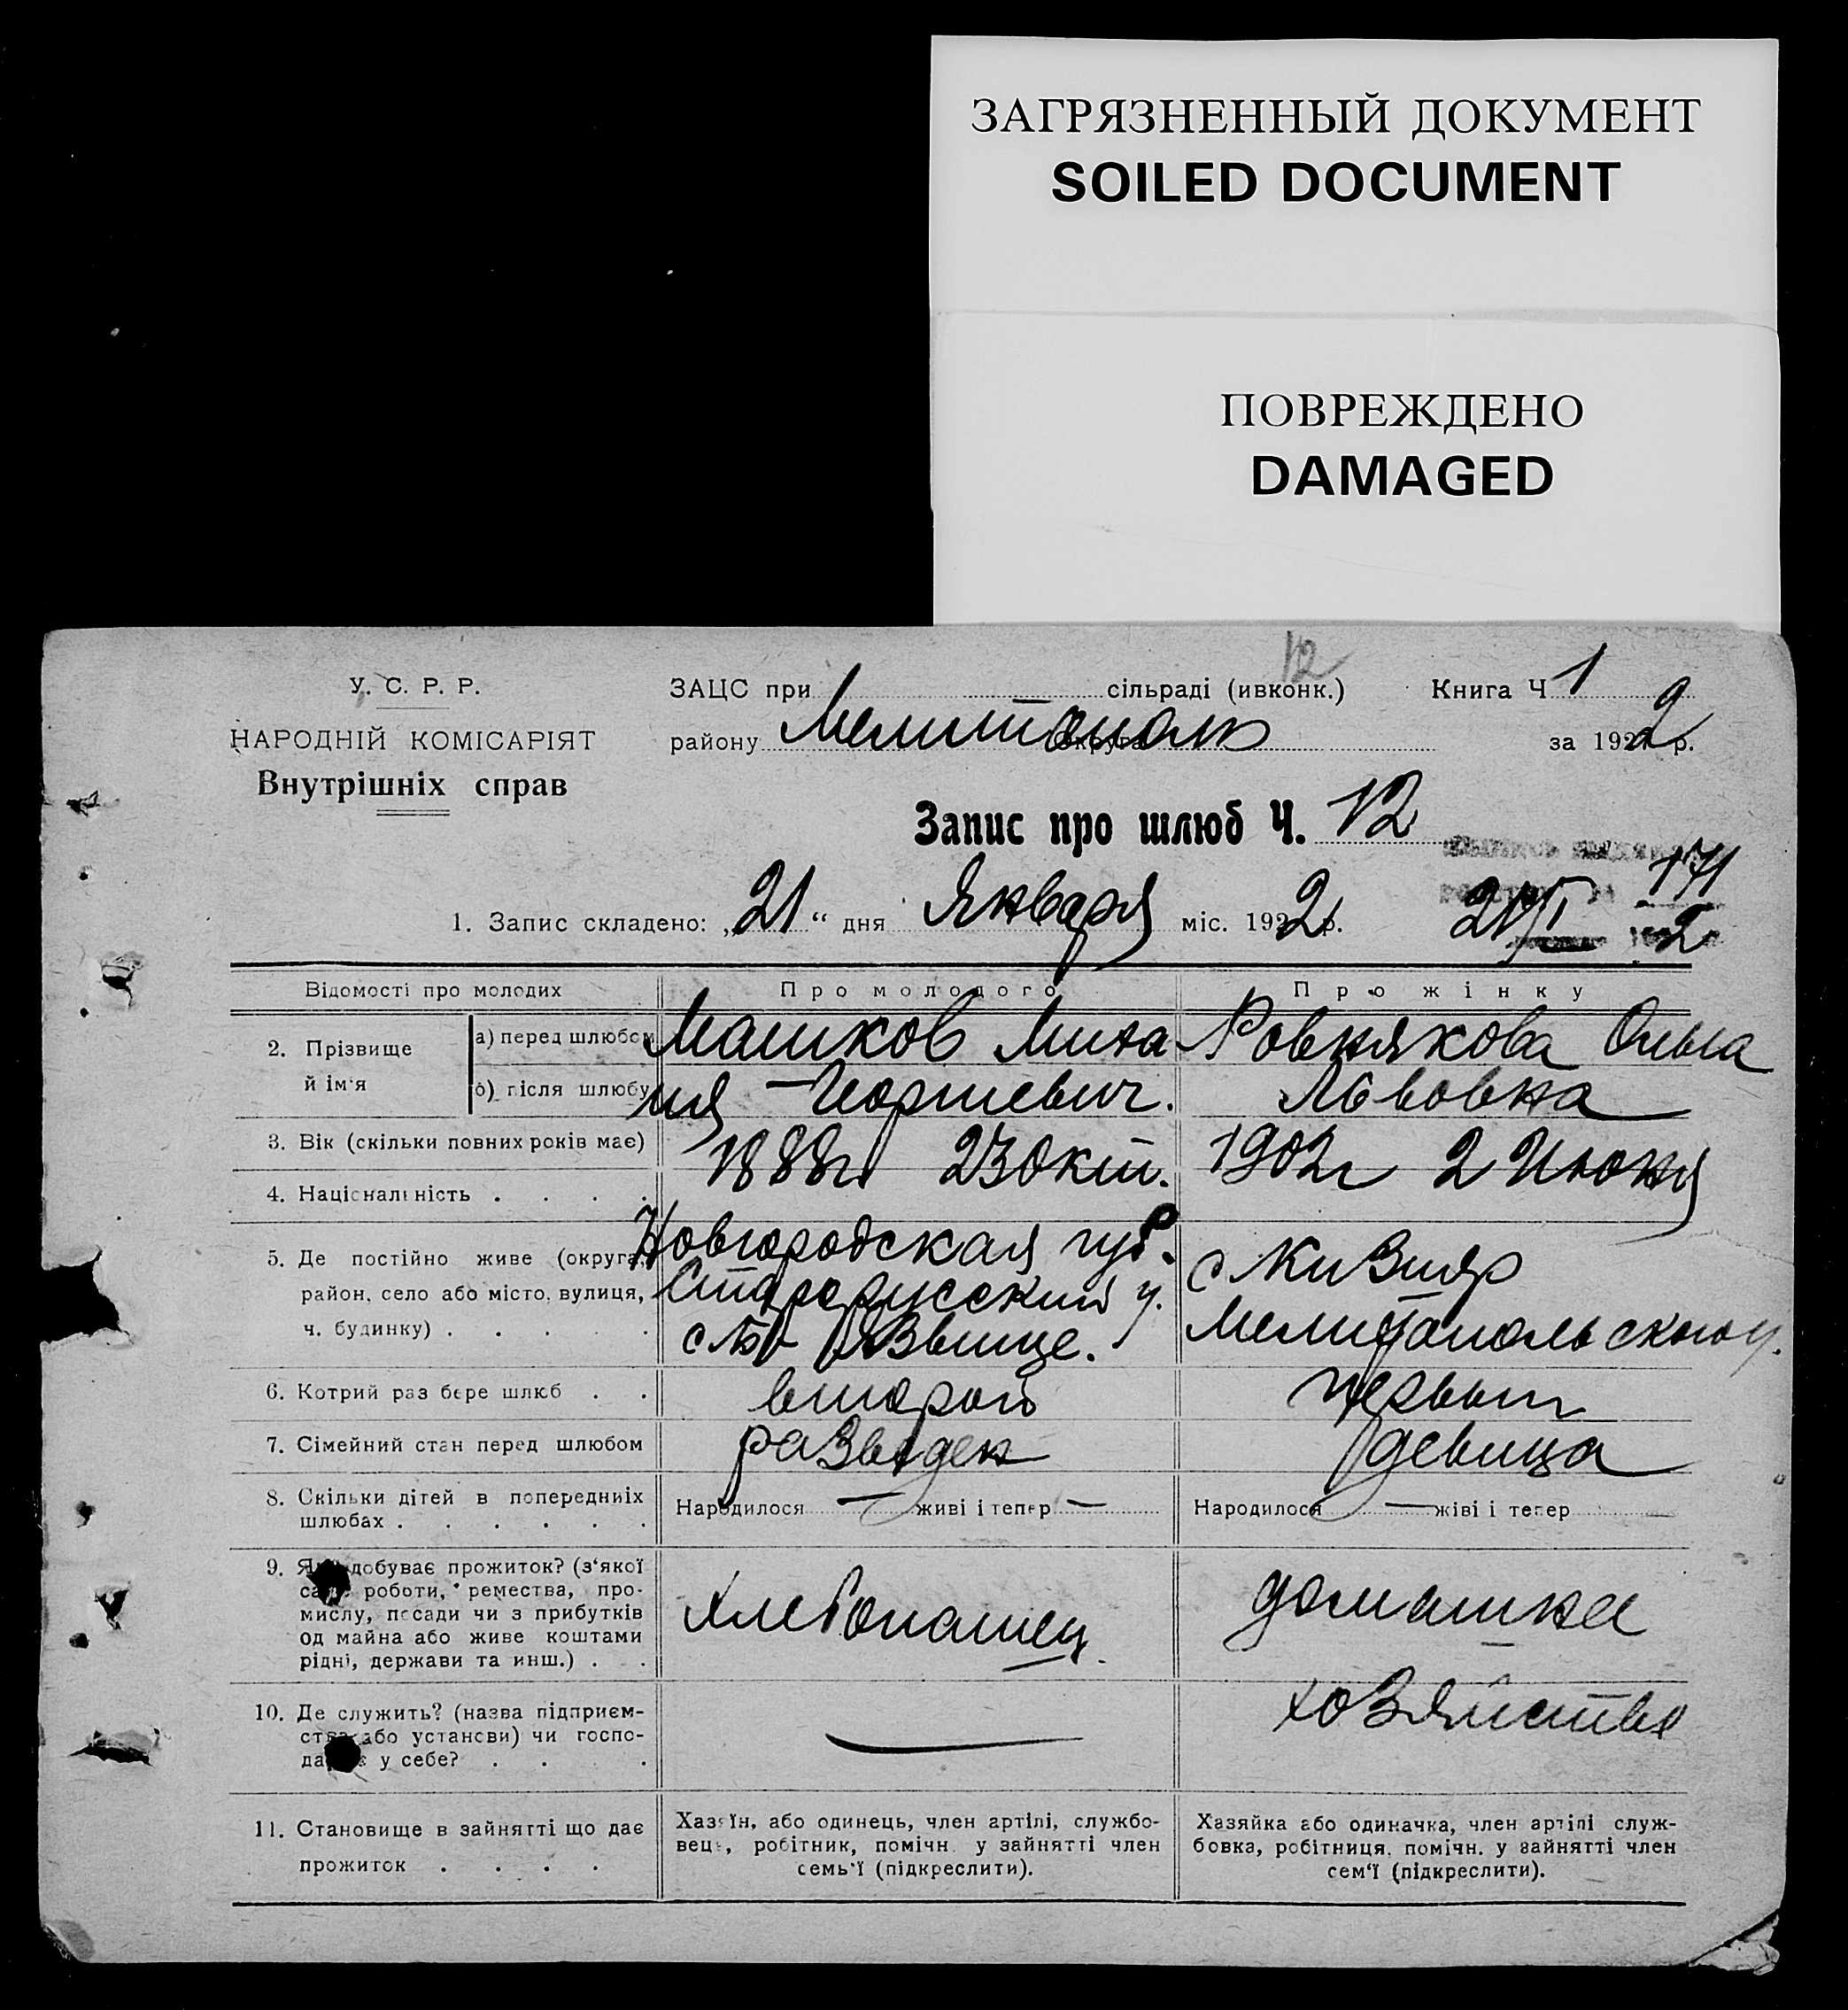 ЗАГРЯЗНЕННЫЙ ДОКУМЕНТ
SOILED DOCUMENT
ПОВРЕЖДЕНО
DAMAGED
12
У. С. Р. Р.
НАРОДНІЙ КОМІСАРІЯТ
Внутрішніх справ
ЗАЦС при сільраді (ивконк.) Книга Ч 1
району Мелитополь округа за 1922 р.
Запис про шлюб Ч. 12
171
1. Запис складено: „21“ дня Января міс. 1922 р.
Відомості про молодих
Про молодого
Про жінку
2. Прізвище й ім'я
а) перед шлюбом
б) після шлюбу
Машков Миха
ил Георгиевич.
Ровнякова Ольга
Львовна
3. Вік (скільки повних років має)
4. Національність . . . .
1888 г 23 Окт.
1902 г 2 Июня
5. Де постійно живе (округа,
район, село або місто, вулиця,
ч. будинку) . . . . .
Новгородская губ.
Старорусский у.
с Кизияр
Мелитопольского у.
6. Котрий раз бере шлюб . .
второй
первый
7. Сімейний стан перед шлюбом
разведен
девица
8. Скільки дітей в попередниіх
шлюбах . . . . . .
Народилося — живі і тепер —
Народилося — жіві і тепер
9. Як добуває прожиток? (з'якої
саме роботи, ремества, про-
мислу, посади чи з прибутків
од майна або живе коштами
рідні, держави та инш.) . .
хлебопашец
домашнее
хозяйство
10. Де служить? (назва підприєм-
ства або установи) чи госпо-
дарює у себе? . . .
—
11. Становище в зайнятті що дає
прожиток . . . .
Хазяїн, або одинець, член артілі, службо-
вець, робітник, помічн. у зайнятті член
семь'ї (підкреслити).
Хазяйка або одиначка, член артілі служ-
бовка, робітниця, помічн. у зайнятті член
сем'ї (підкреслити).